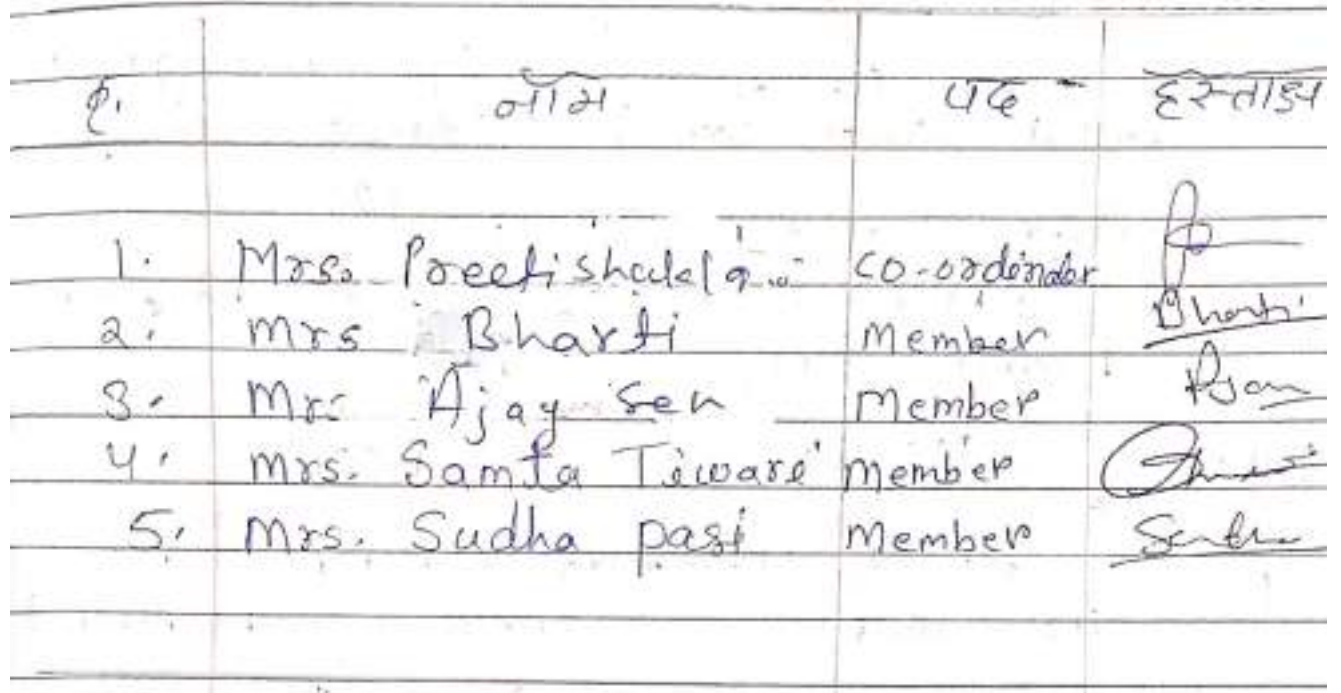 क्र. नाम पद हस्ताक्ष
1. Mrs. Preeti shukla co-ordinator
2. Mrs Bharti Member Bharti
3. Mr. Ajay Sen Member
4. Mrs. Samta Tiwari Member
5. Mrs. Sudha pasi Member